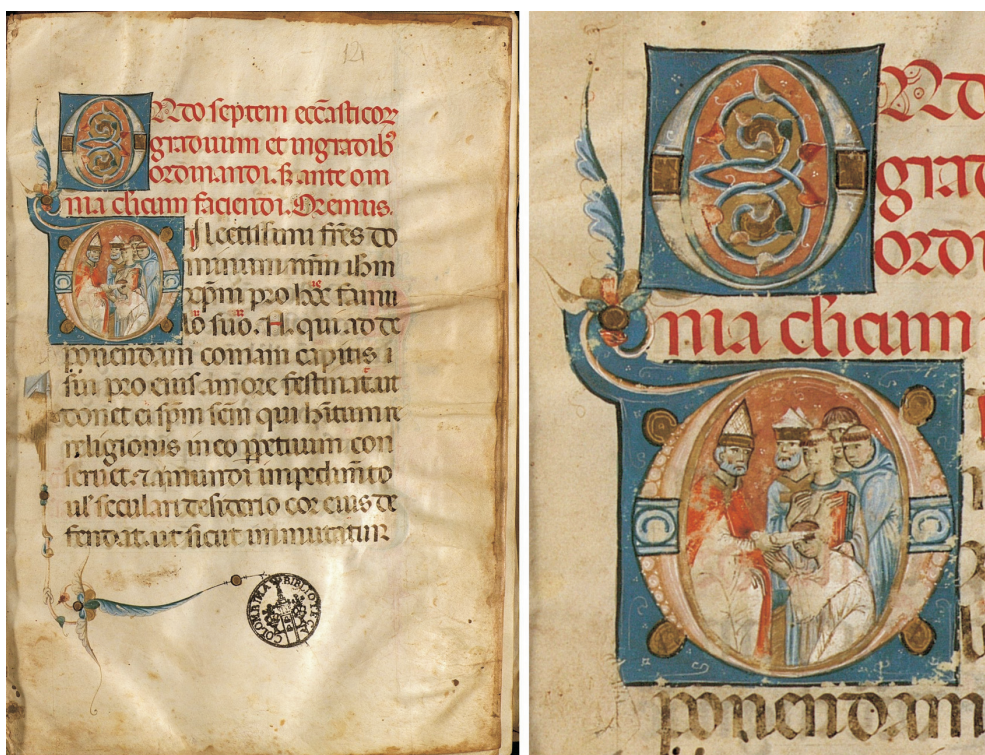 Ordo septem ecc̄asticoꝝ
graduum et in gradibꝰ
ordinandi. sꝫ ante om
nia cl̄icum faciendi. Oremus.
Dilectissimi fr̄es do
minum nr̄m ih̄m
xp̄m pro hoc famu
lo suo .N. qui ad de
ponendam comam capitis
sui pro eius amore festinat. ut
donet ei sp̄m scm̄ qui
religionis in eo ꝑpetuum con
seruet. ⁊ a mundi impedim̄to
ul' seculari desiderio cor eius de
fendat. ut sicut immutatur
BIBLIOTECA COLOMBINA
Ordo
grad
ordi
nia cl̄icum
ponendam